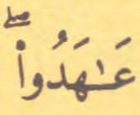 عَـٰهَدُوا۟ۖ